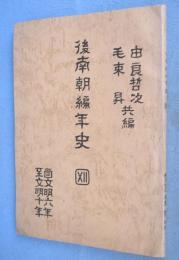 由良哲次
毛束 昇 共編
後南朝編年史
XII
自文明六年
至文明十年